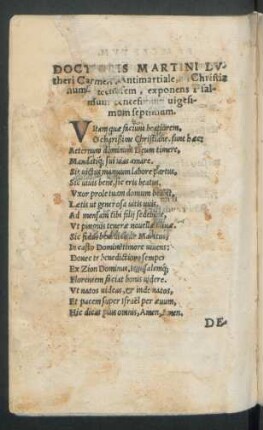 DOCTORIS MARTINI LV-
theri Carmen Antimartiale, Christia
num exponens Psal-
mum centesimum uigesi-
mum septimum.
Vitam quæ faciunt beatiorem,
O charissime Christiane, sunt hæc:
Aeternum dominum Deum timere,
Mandatisq; sui uiæ amare.
Sic uictus manuum labore partus,
Sic uiuis bene, sic eris beatus.
Vxor prole tuam domum beabit,
Lætis ut generosa uitis uuis,
Ad mensam tibi filij sedebunt,
Vt pinguis teneræ nouella oliuæ.
Sic fidus
In casto Domini timore uiuens:
Donet te benedictione semper
Ex Zion Dominus,
Florentem faciat bonis uidere.
Vt natos uideas, & inde natos,
Et pacem super Israël per æuum,
Hic dicat pius omnis, Amen, Amen.
DE-